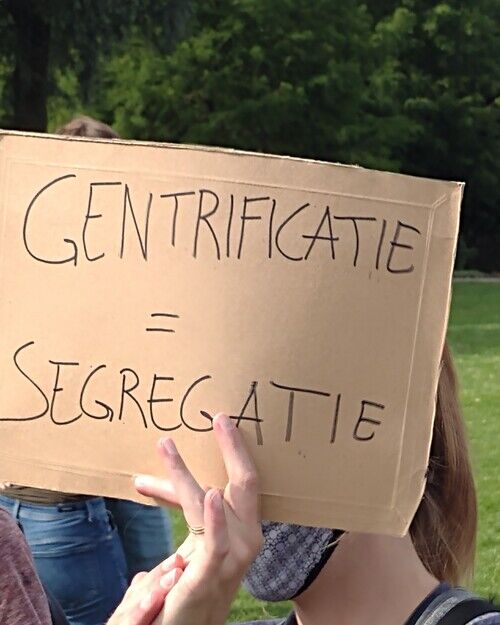 GENTRIFICATIE
=
SEGREGATIE